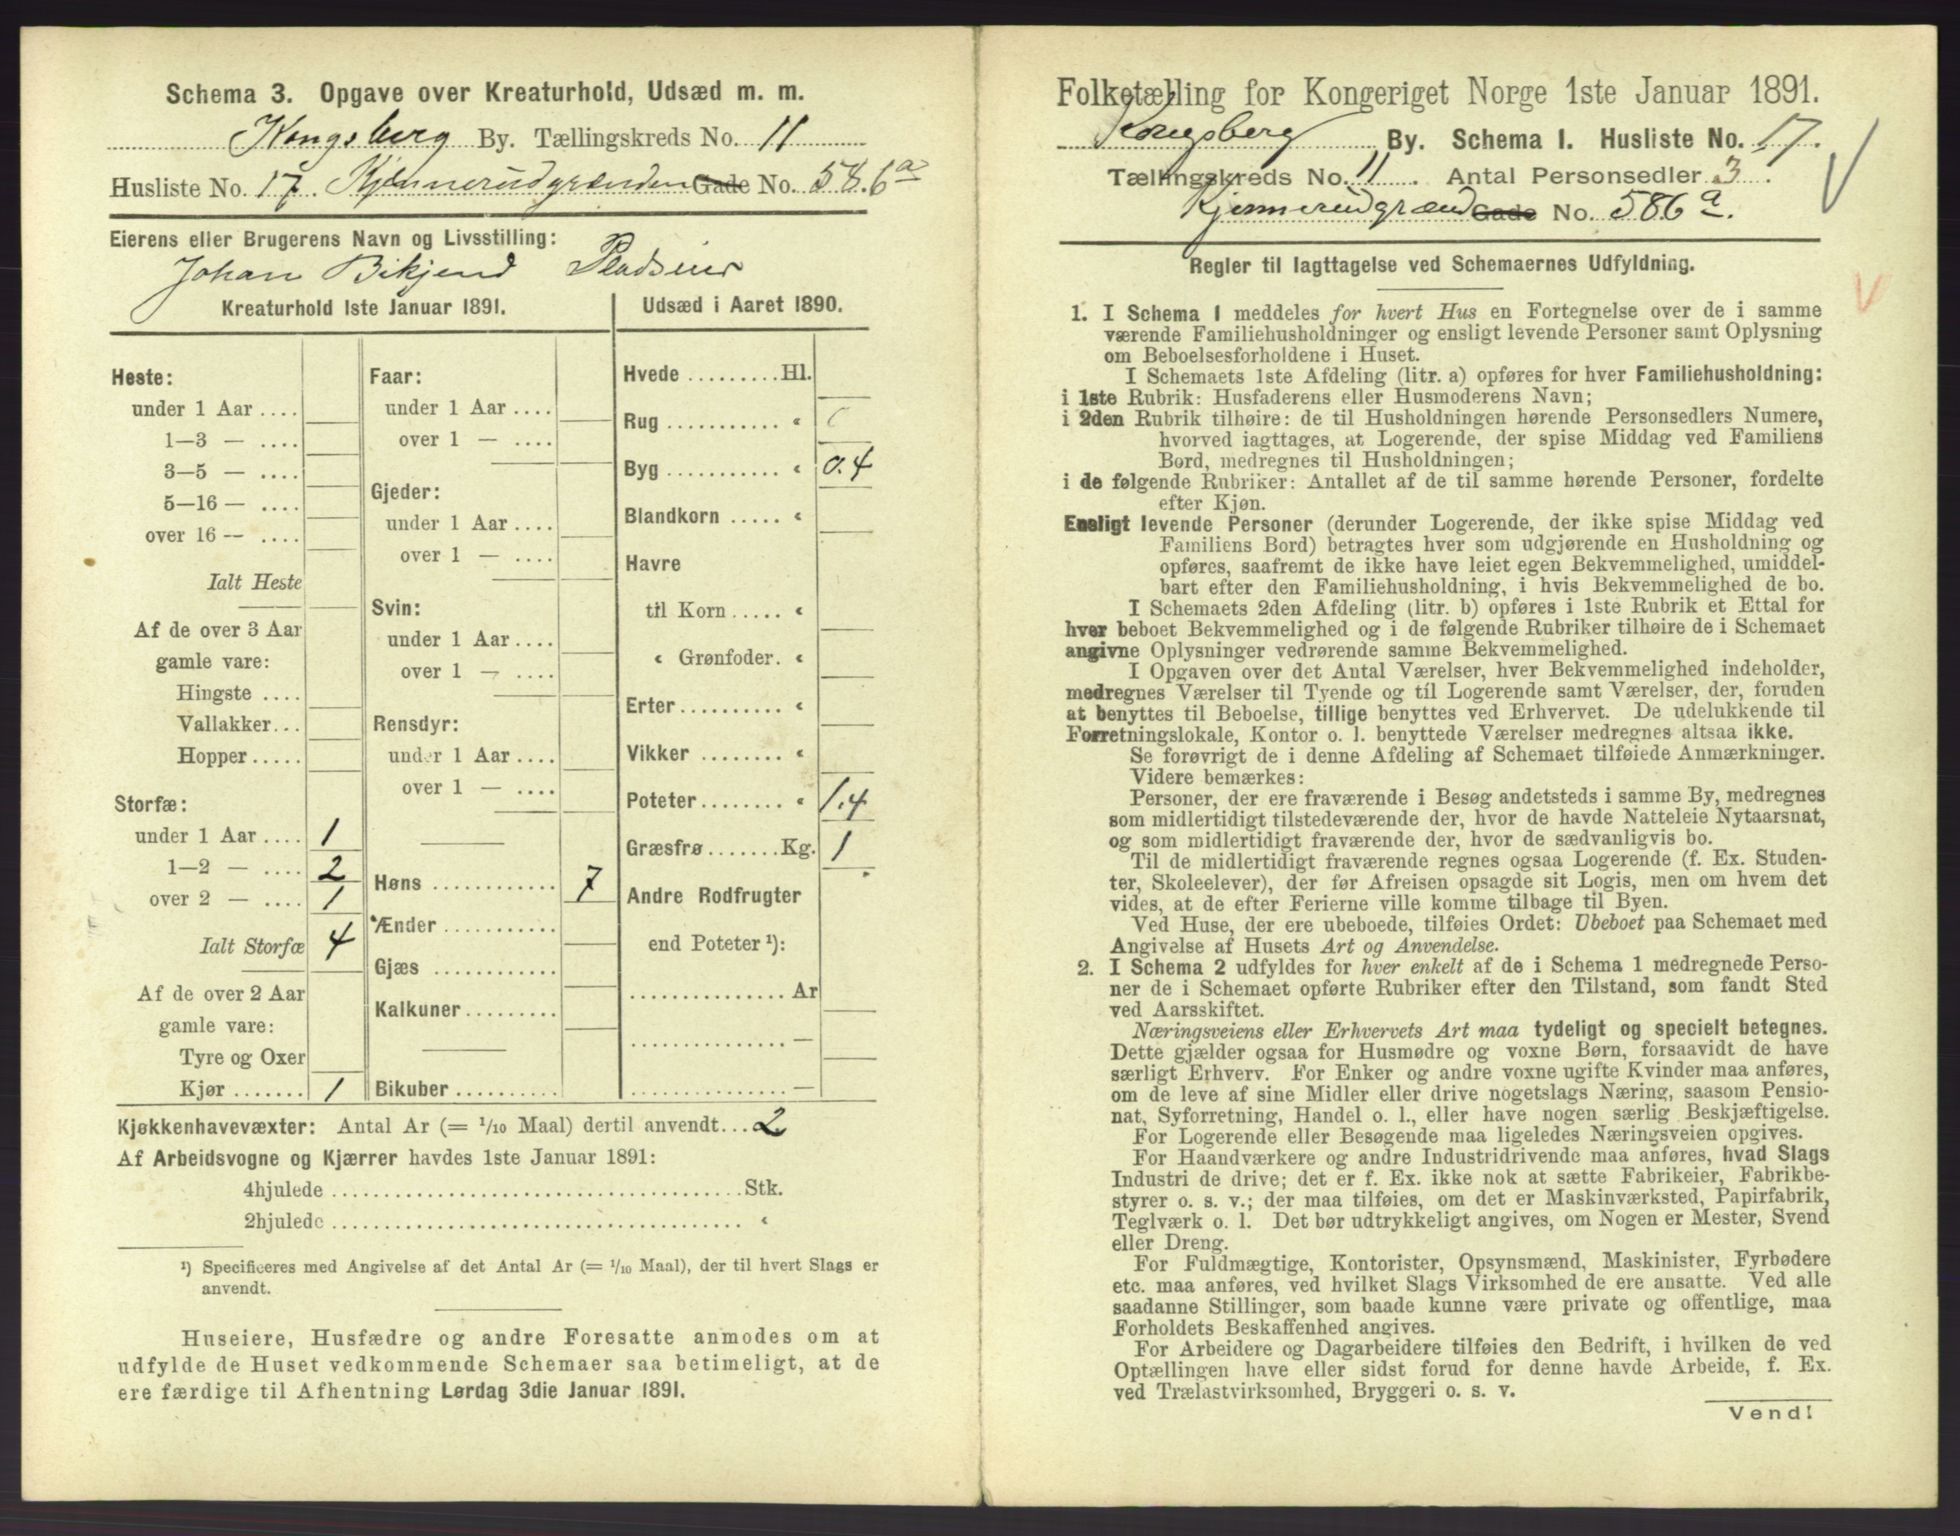 Schema 3. Opgave over Kreaturhold, Udsæd m. m.
Kongsberg By. Tællingskreds No. 11
Husliste No. 17 Kjennerudgrænden Gade No. 586a
Eierens eller Brugerens Navn og Livsstilling:
Johan Bikjend Pladseier
Kreaturhold 1ste Januar 1891.
Heste:
under 1 Aar ....
1—3 — ....
3—5 — ....
5—16 — ....
over 16 — ....
Ialt Heste
Af de over 3 Aar
gamle vare:
Hingste ....
Vallakker...
Hopper.....
Storfæ:
under 1 Aar .... 1
1—2 — .... 2
over 2 — .... 1
Ialt Storfæ 4
Af de over 2 Aar
gamle vare:
Tyre og Oxer
Kjør ....... 1
Faar:
under 1 Aar ....
over 1 — ....
Gjeder:
under 1 Aar ....
over 1 — ....
Svin:
under 1 Aar ....
over 1 — ....
Rensdyr:
under 1 Aar ....
over 1 — ....
Høns ............ 7
Ænder ...........
Gjæs ............
Kalkuner.........
Bikuber ..........
Udsæd i Aaret 1890.
Hvede .........Hl.
Rug ........... « 0
Byg ........... « 0.4
Blandkorn ..... «
Havre
til Korn ..... «
« Grønfoder. «
Erter .......... «
Vikker ........ «
Poteter ........ « 1.4
Græsfrø .......Kg. 1
Andre Rodfrugter
end Poteter ¹):
............... Ar
............... —
............... —
Kjøkkenhavevæxter: Antal Ar (= 1/10 Maal) dertil anvendt... 2
Af Arbeidsvogne og Kjærrer havdes 1ste Januar 1891:
4hjulede ........................................Stk.
2hjulede ........................................ «
¹) Specificeres med Angivelse af det Antal Ar (= 1/10 Maal), der til hvert Slags er
anvendt.
Huseiere, Husfædre og andre Foresatte anmodes om at
udfylde de Huset vedkommende Schemaer saa betimeligt, at de
ere færdige til Afhentning Lørdag 3die Januar 1891.
Folketælling for Kongeriget Norge 1ste Januar 1891.
Kongsberg By. Schema 1. Husliste No. 17.
Tællingskreds No. 11. Antal Personsedler 3.
Kjennerudgrænd Gade No. 586a.
Regler til Iagttagelse ved Schemaernes Udfyldning.
1. I Schema 1 meddeles for hvert Hus en Fortegnelse over de i samme
værende Familiehusholdninger og ensligt levende Personer samt Oplysning
om Beboelsesforholdene i Huset.
I Schemaets 1ste Afdeling (litr. a) opføres for hver Familiehusholdning:
i 1ste Rubrik: Husfaderens eller Husmoderens Navn;
i 2den Rubrik tilhøire: de til Husholdningen hørende Personsedlers Numere,
hvorved iagttages, at Logerende, der spise Middag ved Familiens
Bord, medregnes til Husholdningen;
i de følgende Rubriker: Antallet af de til samme hørende Personer, fordelte
efter Kjøn.
Ensligt levende Personer (derunder Logerende, der ikke spise Middag ved
Familiens Bord) betragtes hver som udgjørende en Husholdning og
opføres, saafremt de ikke have leiet egen Bekvemmelighed, umiddel-
bart efter den Familiehusholdning, i hvis Bekvemmelighed de bo.
I Schemaets 2den Afdeling (litr. b) opføres i 1ste Rubrik et Ettal for
hver beboet Bekvemmelighed og i de følgende Rubriker tilhøire de i Schemaet
angivne Oplysninger vedrørende samme Bekvemmelighed.
I Opgaven over det Antal Værelser, hver Bekvemmelighed indeholder,
medregnes Værelser til Tyende og til Logerende samt Værelser, der, foruden
at benyttes til Beboelse, tillige benyttes ved Erhvervet. De udelukkende til
Forretningslokale, Kontor o. l. benyttede Værelser medregnes altsaa ikke.
Se forøvrigt de i denne Afdeling af Schemaet tilføiede Anmærkninger.
Videre bemærkes:
Personer, der ere fraværende i Besøg andetsteds i samme By, medregnes
som midlertidigt tilstedeværende der, hvor de havde Natteleie Nytaarsnat,
og som midlertidigt fraværende der, hvor de sædvanligvis bo.
Til de midlertidigt fraværende regnes ogsaa Logerende (f. Ex. Studen-
ter, Skoleelever), der før Afreisen opsagde sit Logis, men om hvem det
vides, at de efter Ferierne ville komme tilbage til Byen.
Ved Huse, der ere ubeboede, tilføies Ordet: Ubeboet paa Schemaet med
Angivelse af Husets Art og Anvendelse.
2. I Schema 2 udfyldes for hver enkelt af de i Schema 1 medregnede Perso-
ner de i Schemaet opførte Rubriker efter den Tilstand, som fandt Sted
ved Aarsskiftet.
Næringsveiens eller Erhvervets Art maa tydeligt og specielt betegnes.
Dette gjælder ogsaa for Husmødre og voxne Børn, forsaavidt de have
særligt Erhverv. For Enker og andre voxne ugifte Kvinder maa anføres,
om de leve af sine Midler eller drive nogetslags Næring, saasom Pensio-
nat, Syforretning, Handel o. l., eller have nogen særlig Beskjæftigelse.
For Logerende eller Besøgende maa ligeledes Næringsveien opgives.
For Haandværkere og andre Industridrivende maa anføres, hvad Slags
Industri de drive; det er f. Ex. ikke nok at sætte Fabrikeier, Fabrikbe-
styrer o. s. v.; der maa tilføies, om det er Maskinværksted, Papirfabrik,
Teglværk o. l. Det bør udtrykkeligt angives, om Nogen er Mester, Svend
eller Dreng.
For Fuldmægtige, Kontorister, Opsynsmænd, Maskinister, Fyrbødere
etc. maa anføres, ved hvilket Slags Virksomhed de ere ansatte. Ved alle
saadanne Stillinger, som baade kunne være private og offentlige, maa
Forholdets Beskaffenhed angives.
For Arbeidere og Dagarbeidere tilføies den Bedrift, i hvilken de ved
Optællingen have eller sidst forud for denne havde Arbeide, f. Ex.
ved Trælastvirksomhed, Bryggeri o. s. v.
Vend!